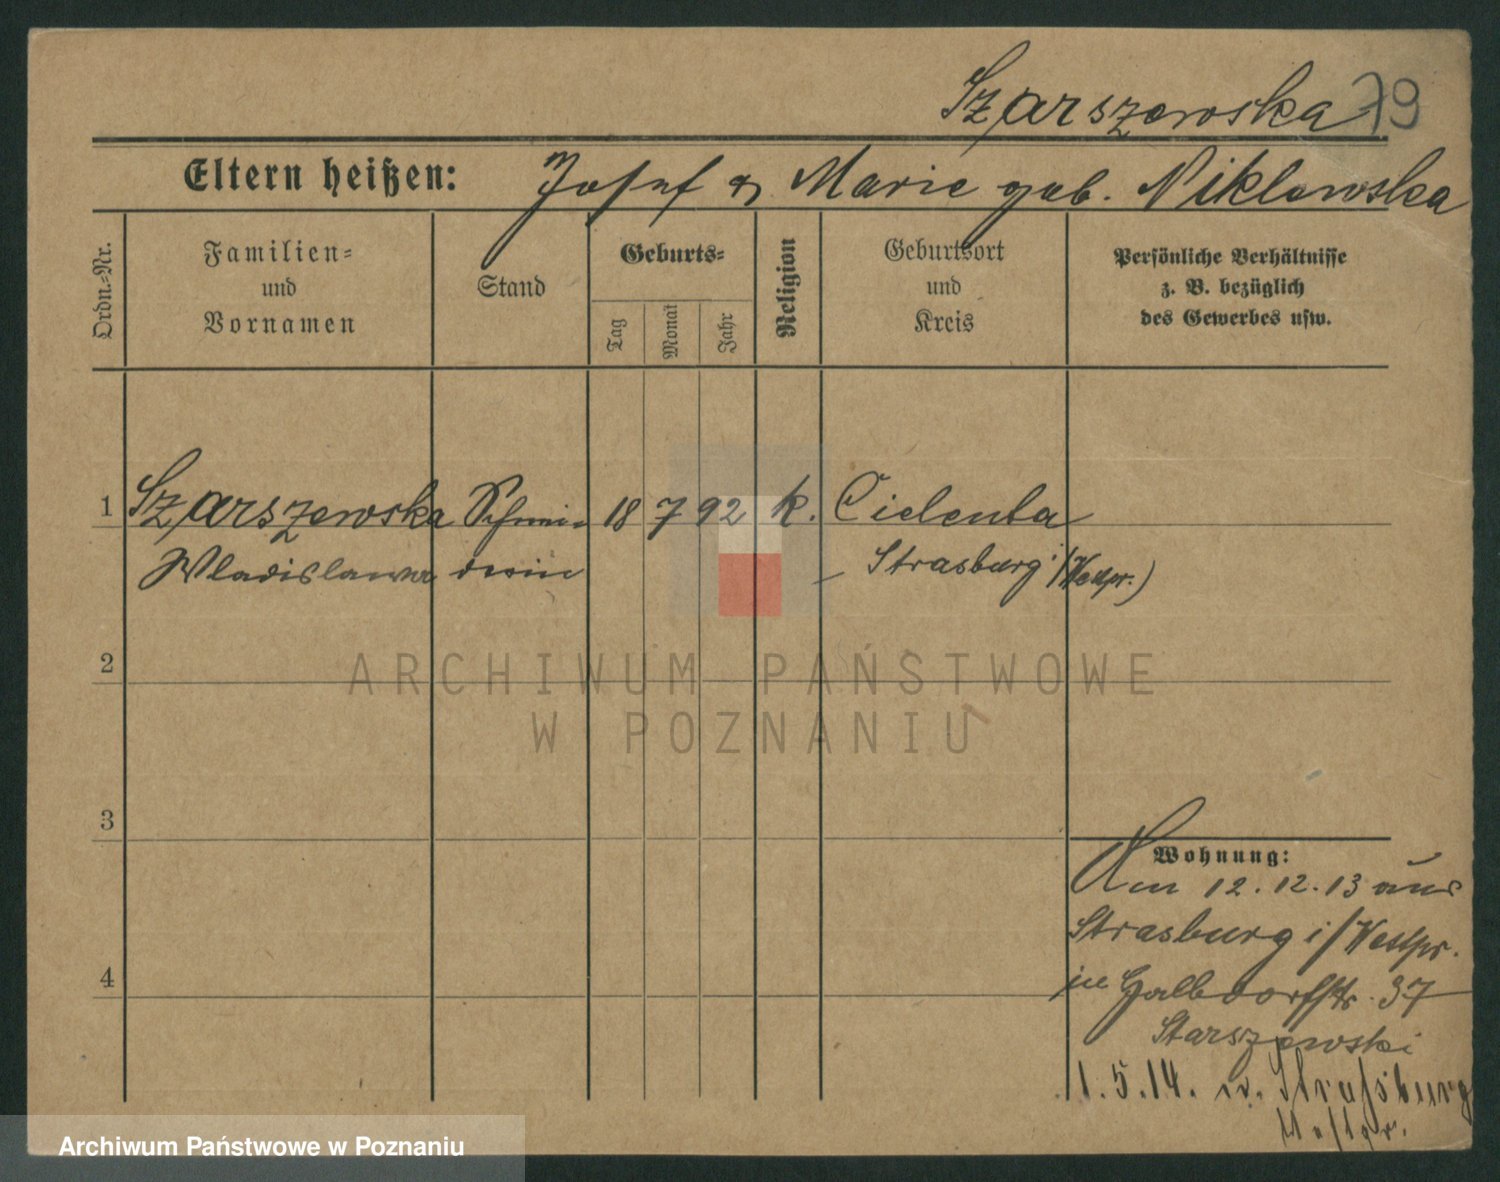 Szarszewska 79
Eltern heißen: Josef & Marie geb. Niklewska
Ordn.-Nr.
Familien-
und
Vornamen
Stand
Geburts-
Tag
Monat
Jahr
Religion
Geburtsort
und
Kreis
Persönliche Verhältnisse
z. B. bezüglich
des Gewerbes usw.
1 Szarszewska Schnei- 18 7 92 k. Cielenta
Wladislawa derin Strasburg i/Westpr.)
2
3
4
Wohnung:
Am 12.12.13 aus
Strasburg i/Westpr.
in Halbdorfstr. 37
Starszewski
1.5.14. n. Straßburg
Westpr.
ARCHIWUM PAŃSTWOWE
W POZNANIU
Archiwum Państwowe w Poznaniu